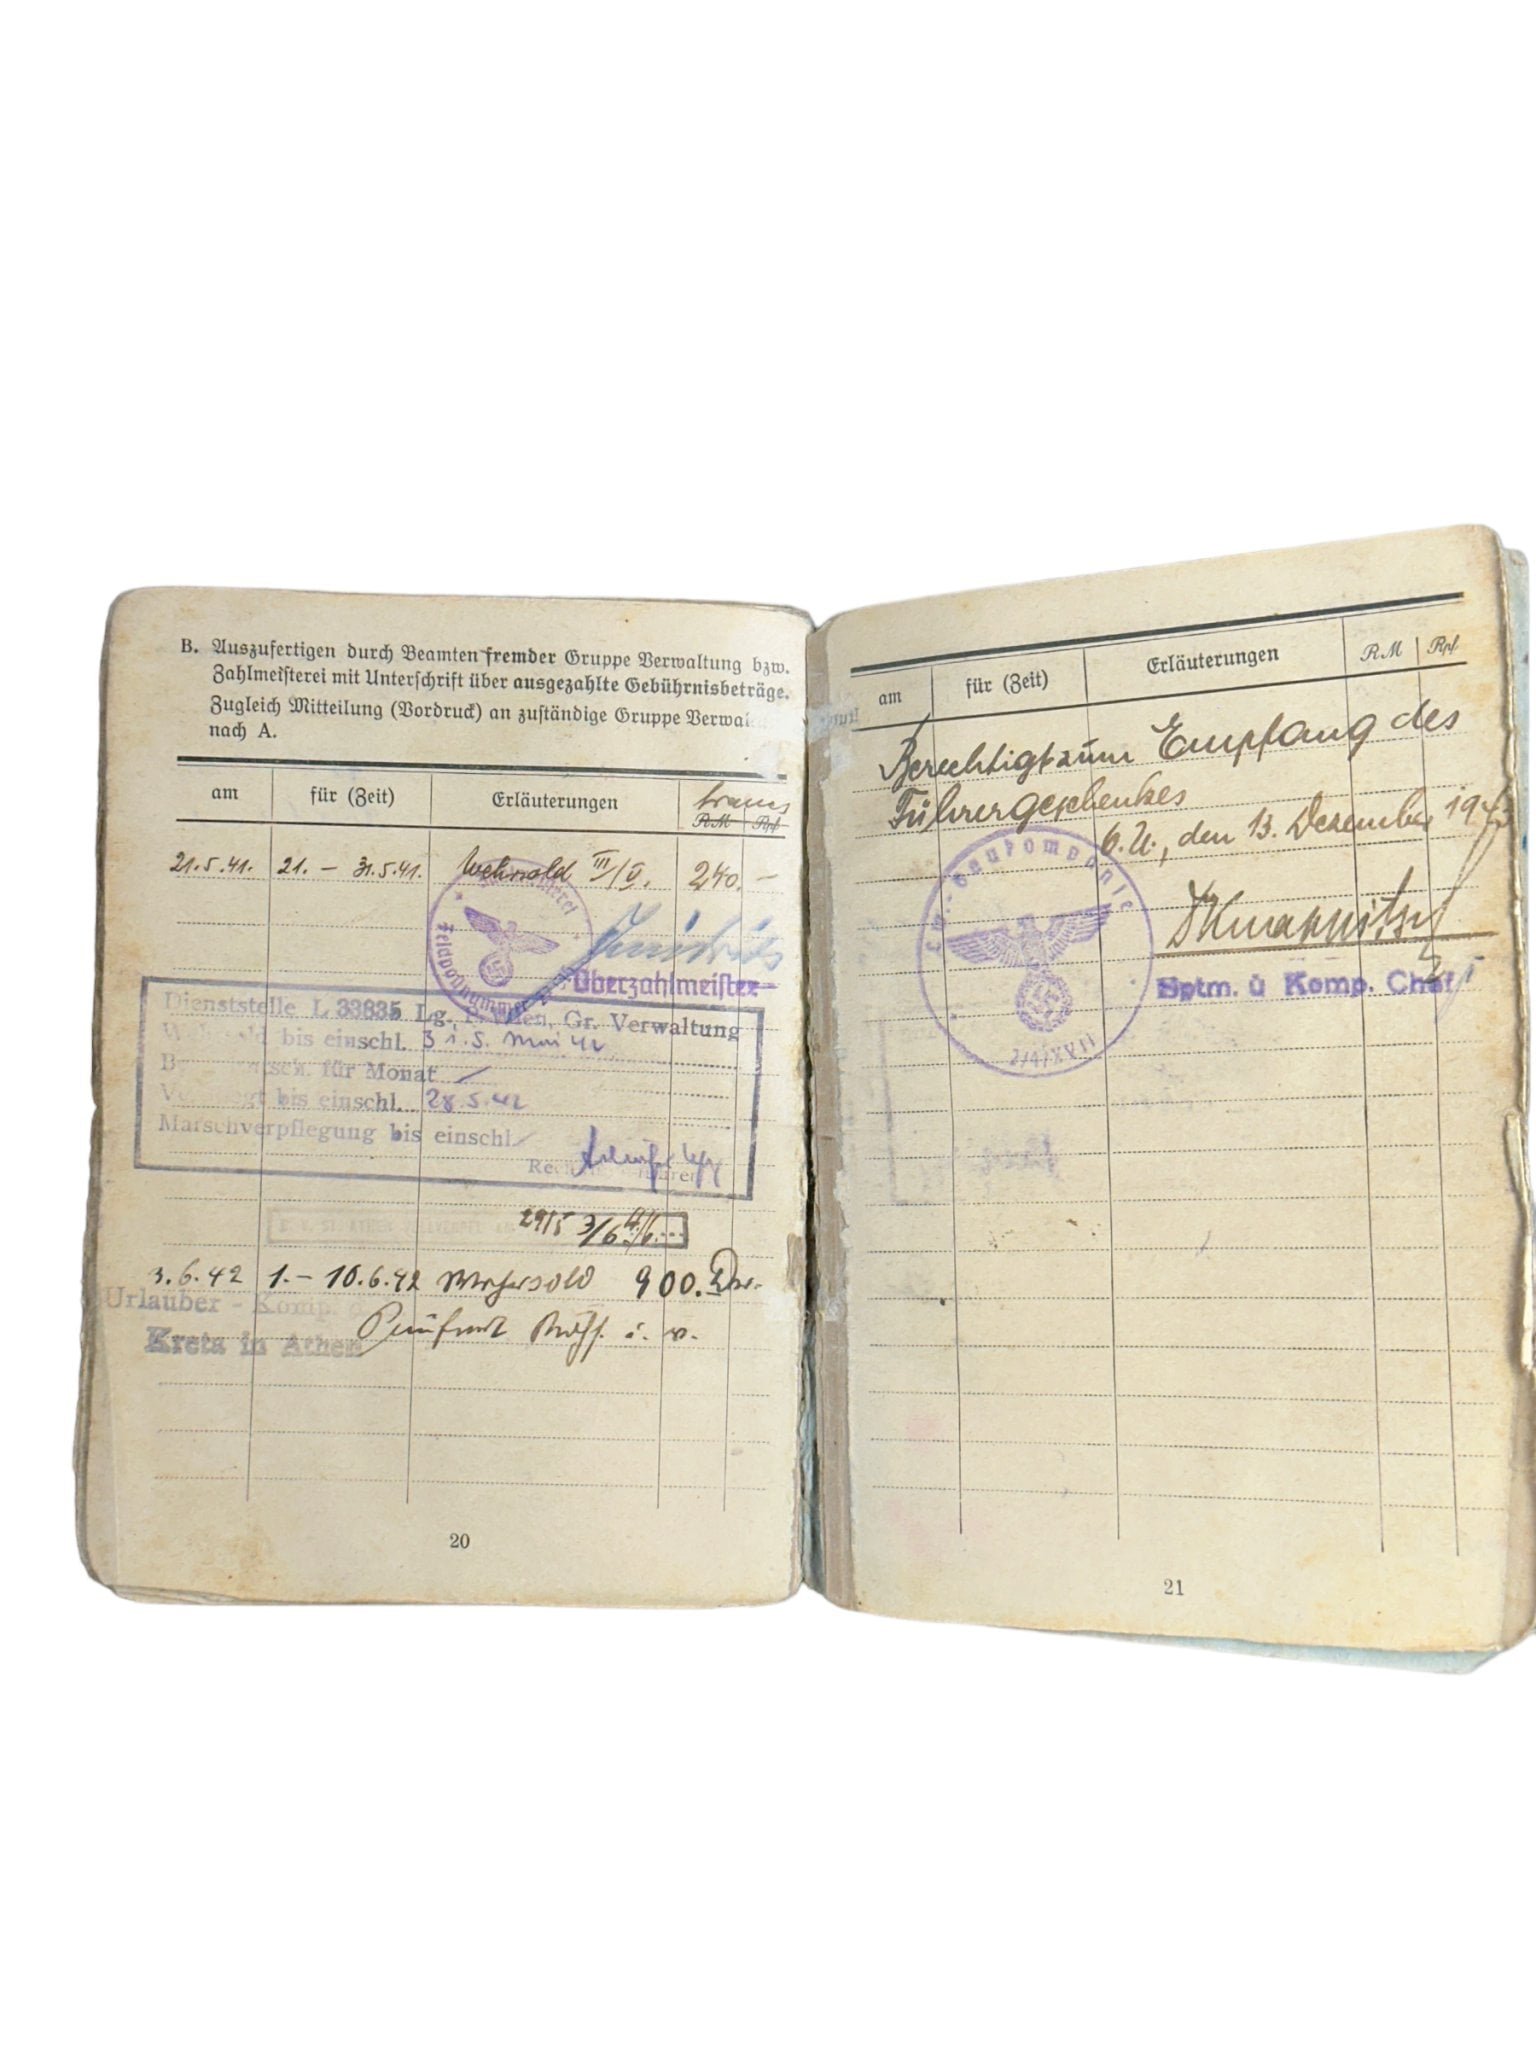 B. Auszufertigen durch Beamten fremder Gruppe Verwaltung bzw.
Zahlmeisterei mit Unterschrift über ausgezahlte Gebührnisbeträge.
Zugleich Mitteilung (Vordruck) an zuständige Gruppe
nach A.
am für (Zeit) Erläuterungen RM Rpf
21.5.41. 21. – 31.5.41. Wehrsold III/V. 240. –
Feldpostnummer
Überzahlmeister
Dienststelle L 33835 Lg. P. Wien, Gr. Verwaltung
bis einschl. 31.5. Mai 42
für Monat
bis einschl. 28.5.42
Marschverpflegung bis einschl.
29/5 3/6 4/6
3.6.42 1.– 10.6.42 Wehrsold 900. Dr.
Urlauber - Komp.
Kreta in Athen
20
am für (Zeit) Erläuterungen RM Rpf
Berechtigt zum Empfang des
Führergeschenkes
O.U., den 13. Dezember 1943
baukompanie
Hptm. u Komp. Chef
2/4/XVII
21